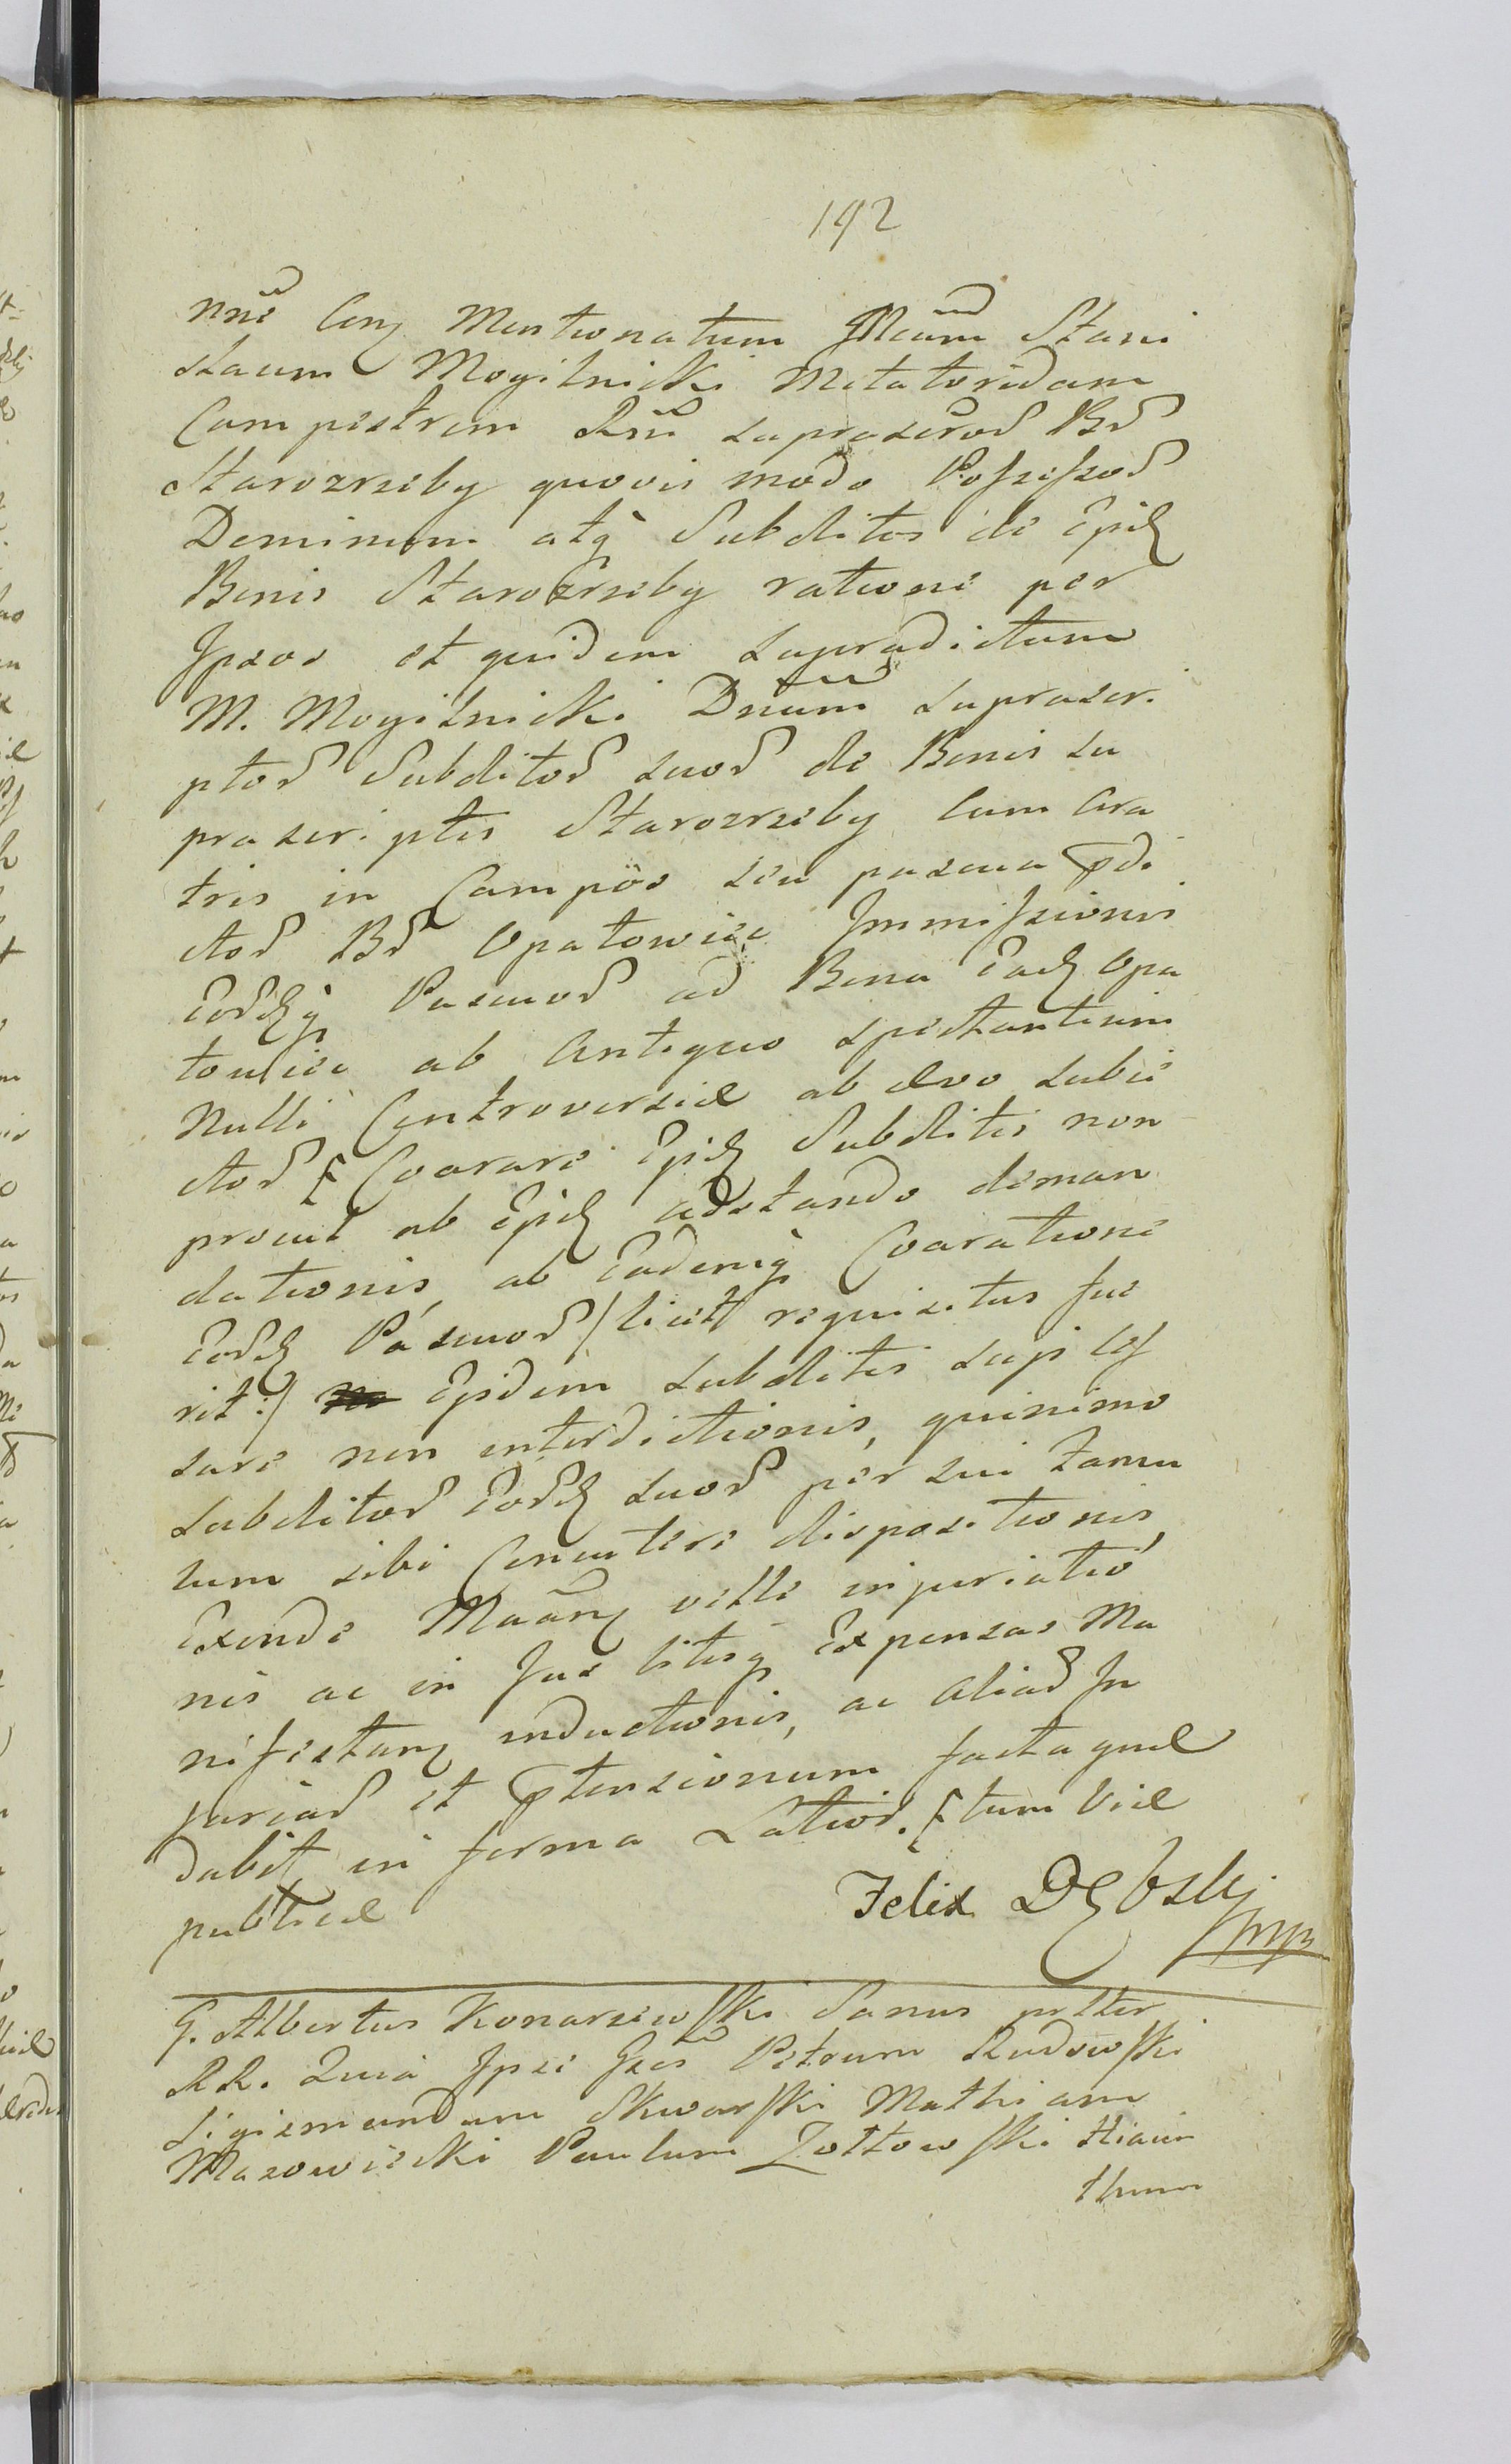 192
nne Cenz Mentionatum Mcum Stani
slaum Mogilnicki Metatoridam
Campestrem Rm suprascrod Bd
Starozrzeby quovis modo Possessod
Dominum atq Subditos de Episd
Bonis Starozrzeby ratione per
Ipsos et quidem supradictum
M. Mogilnicki Dnum suprascri
ptod Subditod suod de Bonis su
prascriptis Starozrzeby cum Ara
tris in Campos seu pascua pdi
ctod Bd Opatowiec Immissionis
Eordq Pascuod ad Bona Ead Opa
towiec ab Antiquo spectantium
Nulli Controversiæ ab ævo subie
ctod Coarare Episd Subditis non
prout ab Episd adstando deman
dationis, ab Eademq Coaratione
Eord Pascuod / licet requisitus fue
rit :/ Eisdem subditis supi
sare non interdictionis, quinimo
subditod Eord suod per sui famu
lum sibi Concutere dispositionis,
Exinde Maanz velle injuriatio
nis ac in Jus litisq Expensas Ma
nifestanz inductionis, ac aliad In
juriad et ptensionum facta quæ
dabit in forma Latiori. tum Viæ
publicæ
Felix Dębski
mpp
G. Albertus Konarzewski Sanus ptter
RR. Quia Ipse Gsos Petrum Rudowski
Sigismundum Skwarski Mathiam
Mazowiecki Paulum Zołtowski Hiacin
thum